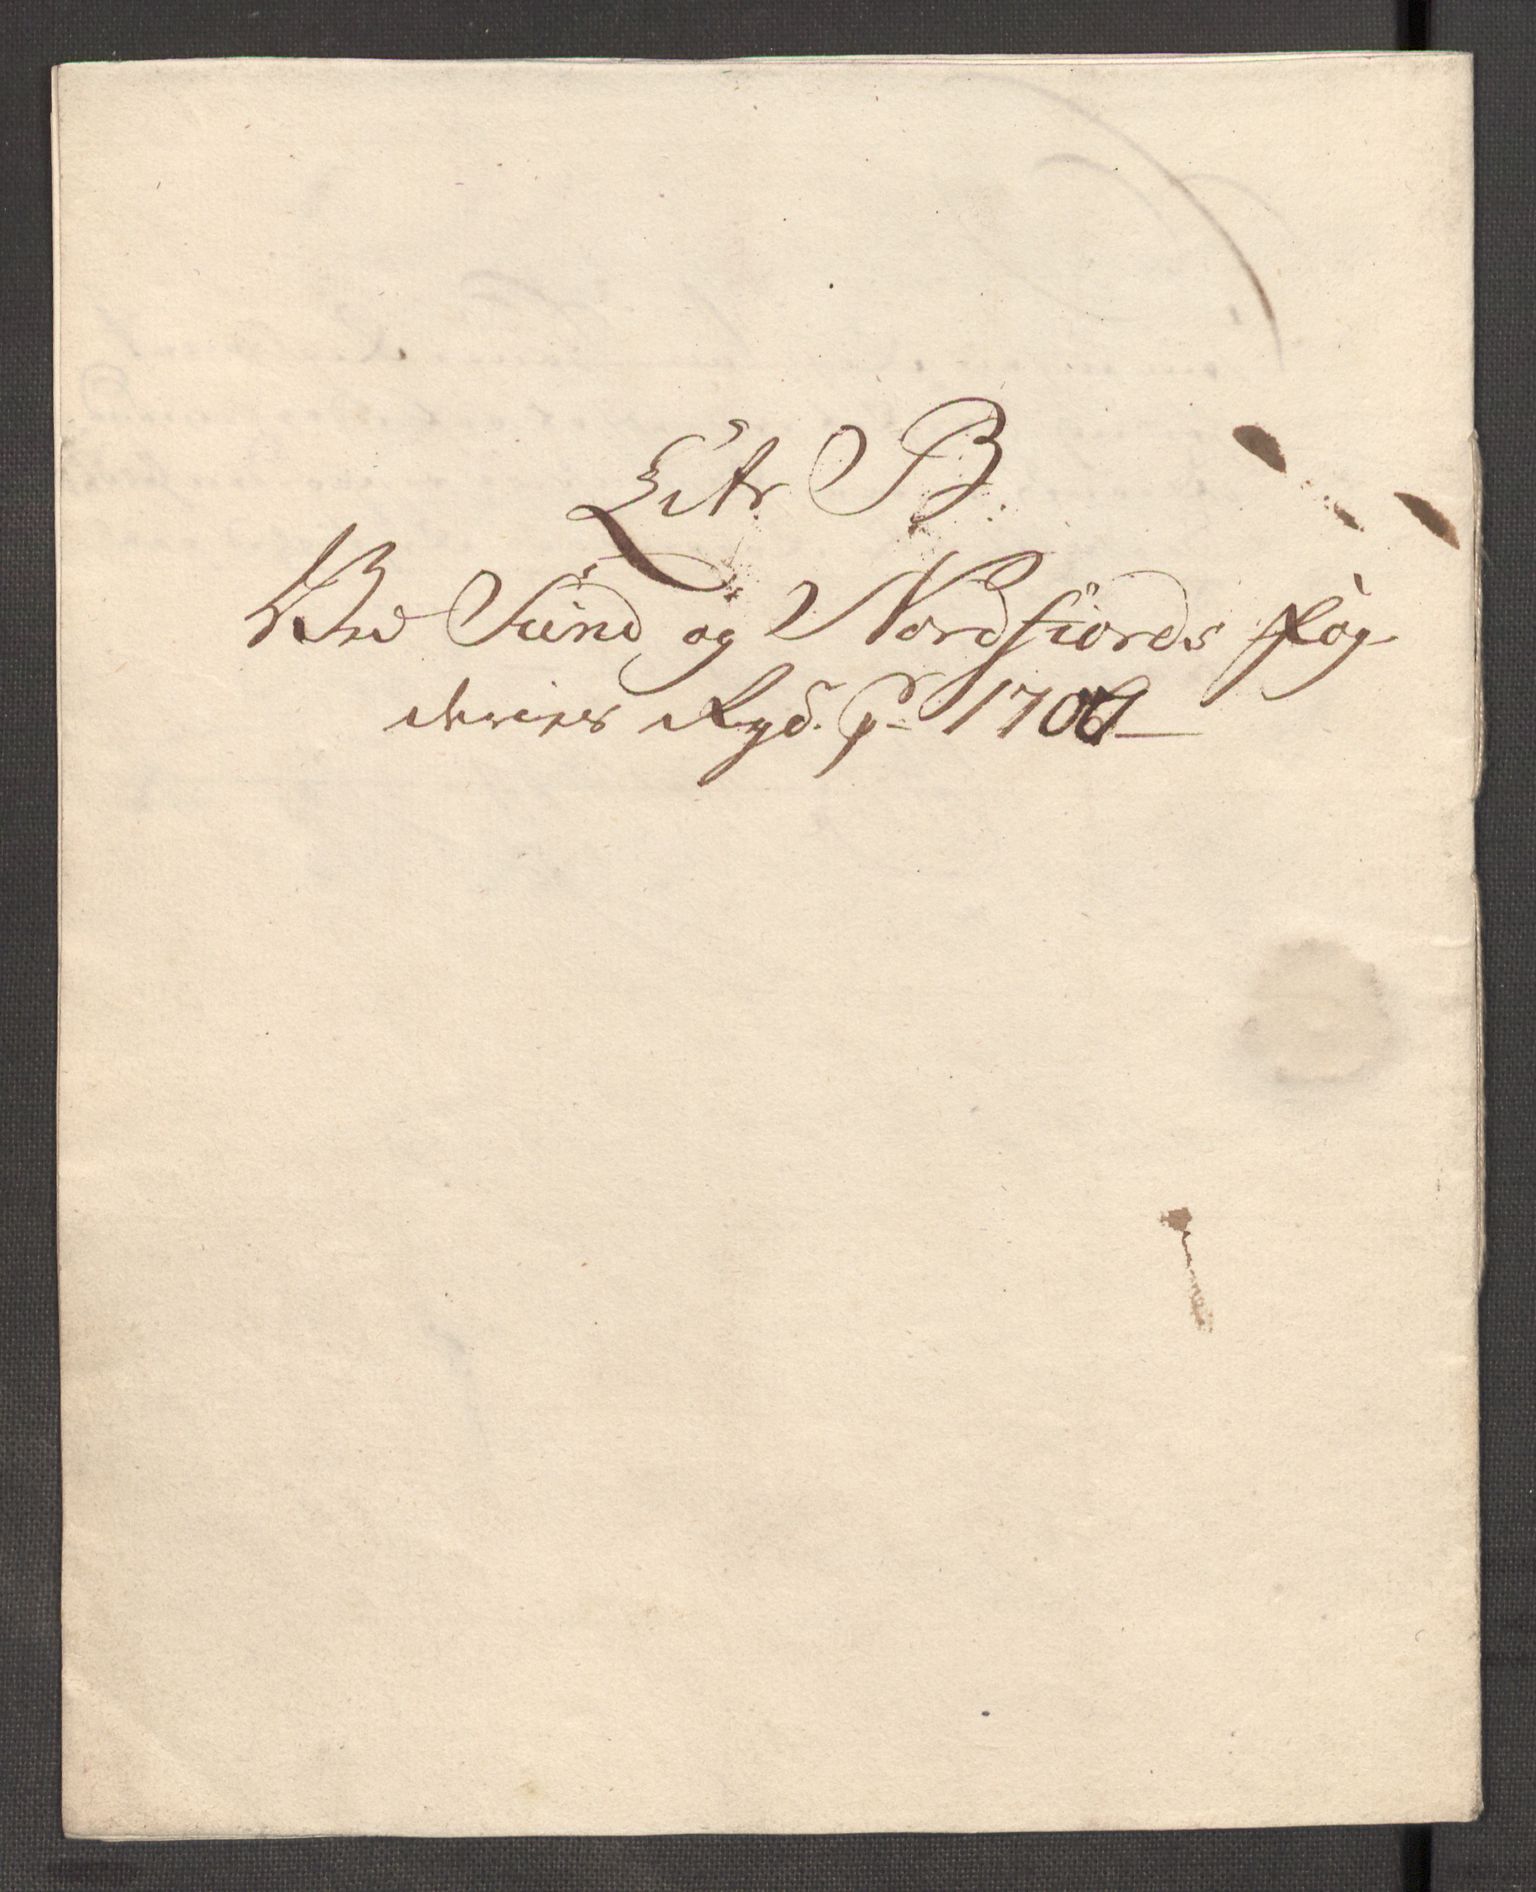 Litr B
Ved Sund og Nordfiords fog-
deries Rgd. p 1706